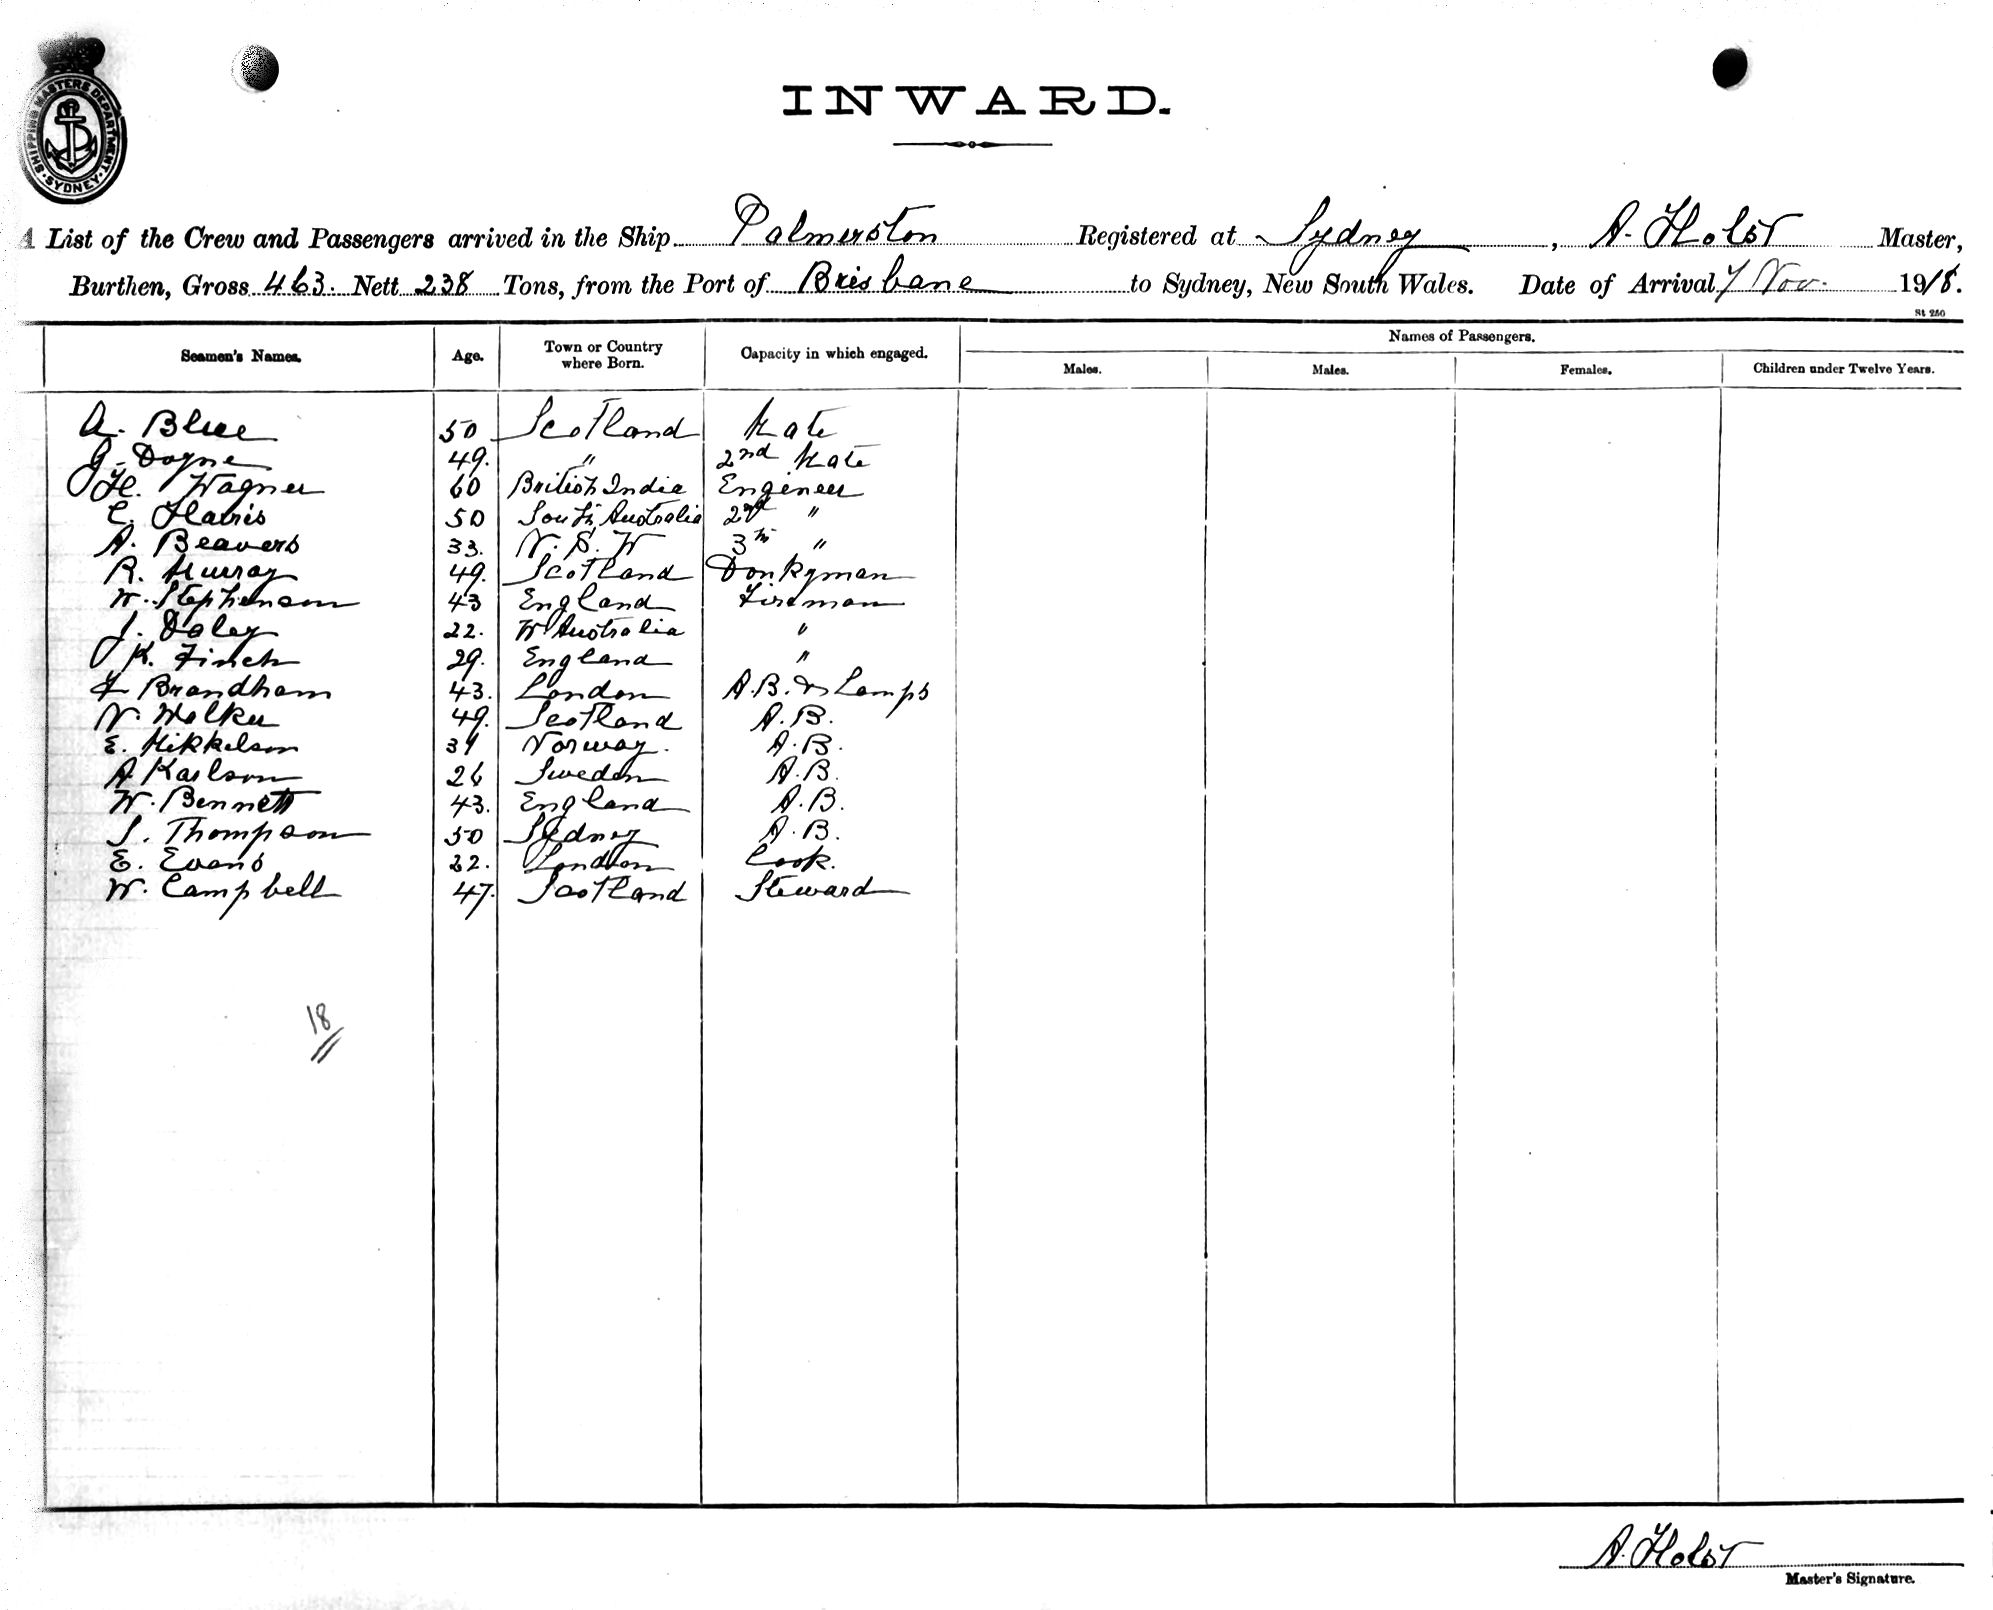 SHIPPING MASTERS DEPARTMENT. SYDNEY.
INWARD.
A List of the Crew and Passengers arrived in the Ship Palmerston Registered at Sydney, A. Holst Master,
Burthen, Gross 463. Nett 238 Tons, from the Port of Brisbane to Sydney, New South Wales. Date of Arrival 7 Nov. 1918.
St 250
Seamen's Names. Age. Town or Country where Born. Capacity in which engaged. Names of Passengers.
Males. Males. Females. Children under Twelve Years.
A. Blue 50 Scotland Mate
G. Doyne 49. " 2nd Mate
H. Wagner 60 British India Engineer
C. Harris 50 South Australia 2nd "
A. Beavers 33. N. S. W 3rd "
R. Murray 49. Scotland Donkyman
W. Stephenson 43 England Fireman
J. Daley 22. W Australia "
K. Finch 29. England "
Brandham 43. London A.B. & Lamps
N. Walker 49. Scotland A.B.
E. Mikkelson 31 Norway. A.B.
A Karlson 26 Sweden A.B.
W. Bennett 43. England A.B.
S. Thompson 50 Sydney A.B.
E. Evans 22. London Cook.
W. Campbell 47. Scotland Steward
18
A. Holst
Master's Signature.